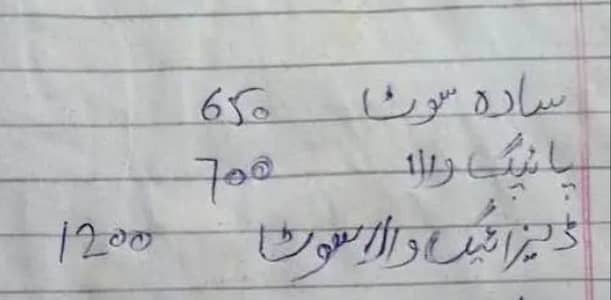 سادہ سوٹ 650
پائپنگ والا 700
ڈیزائنگ والا سوٹ 1200